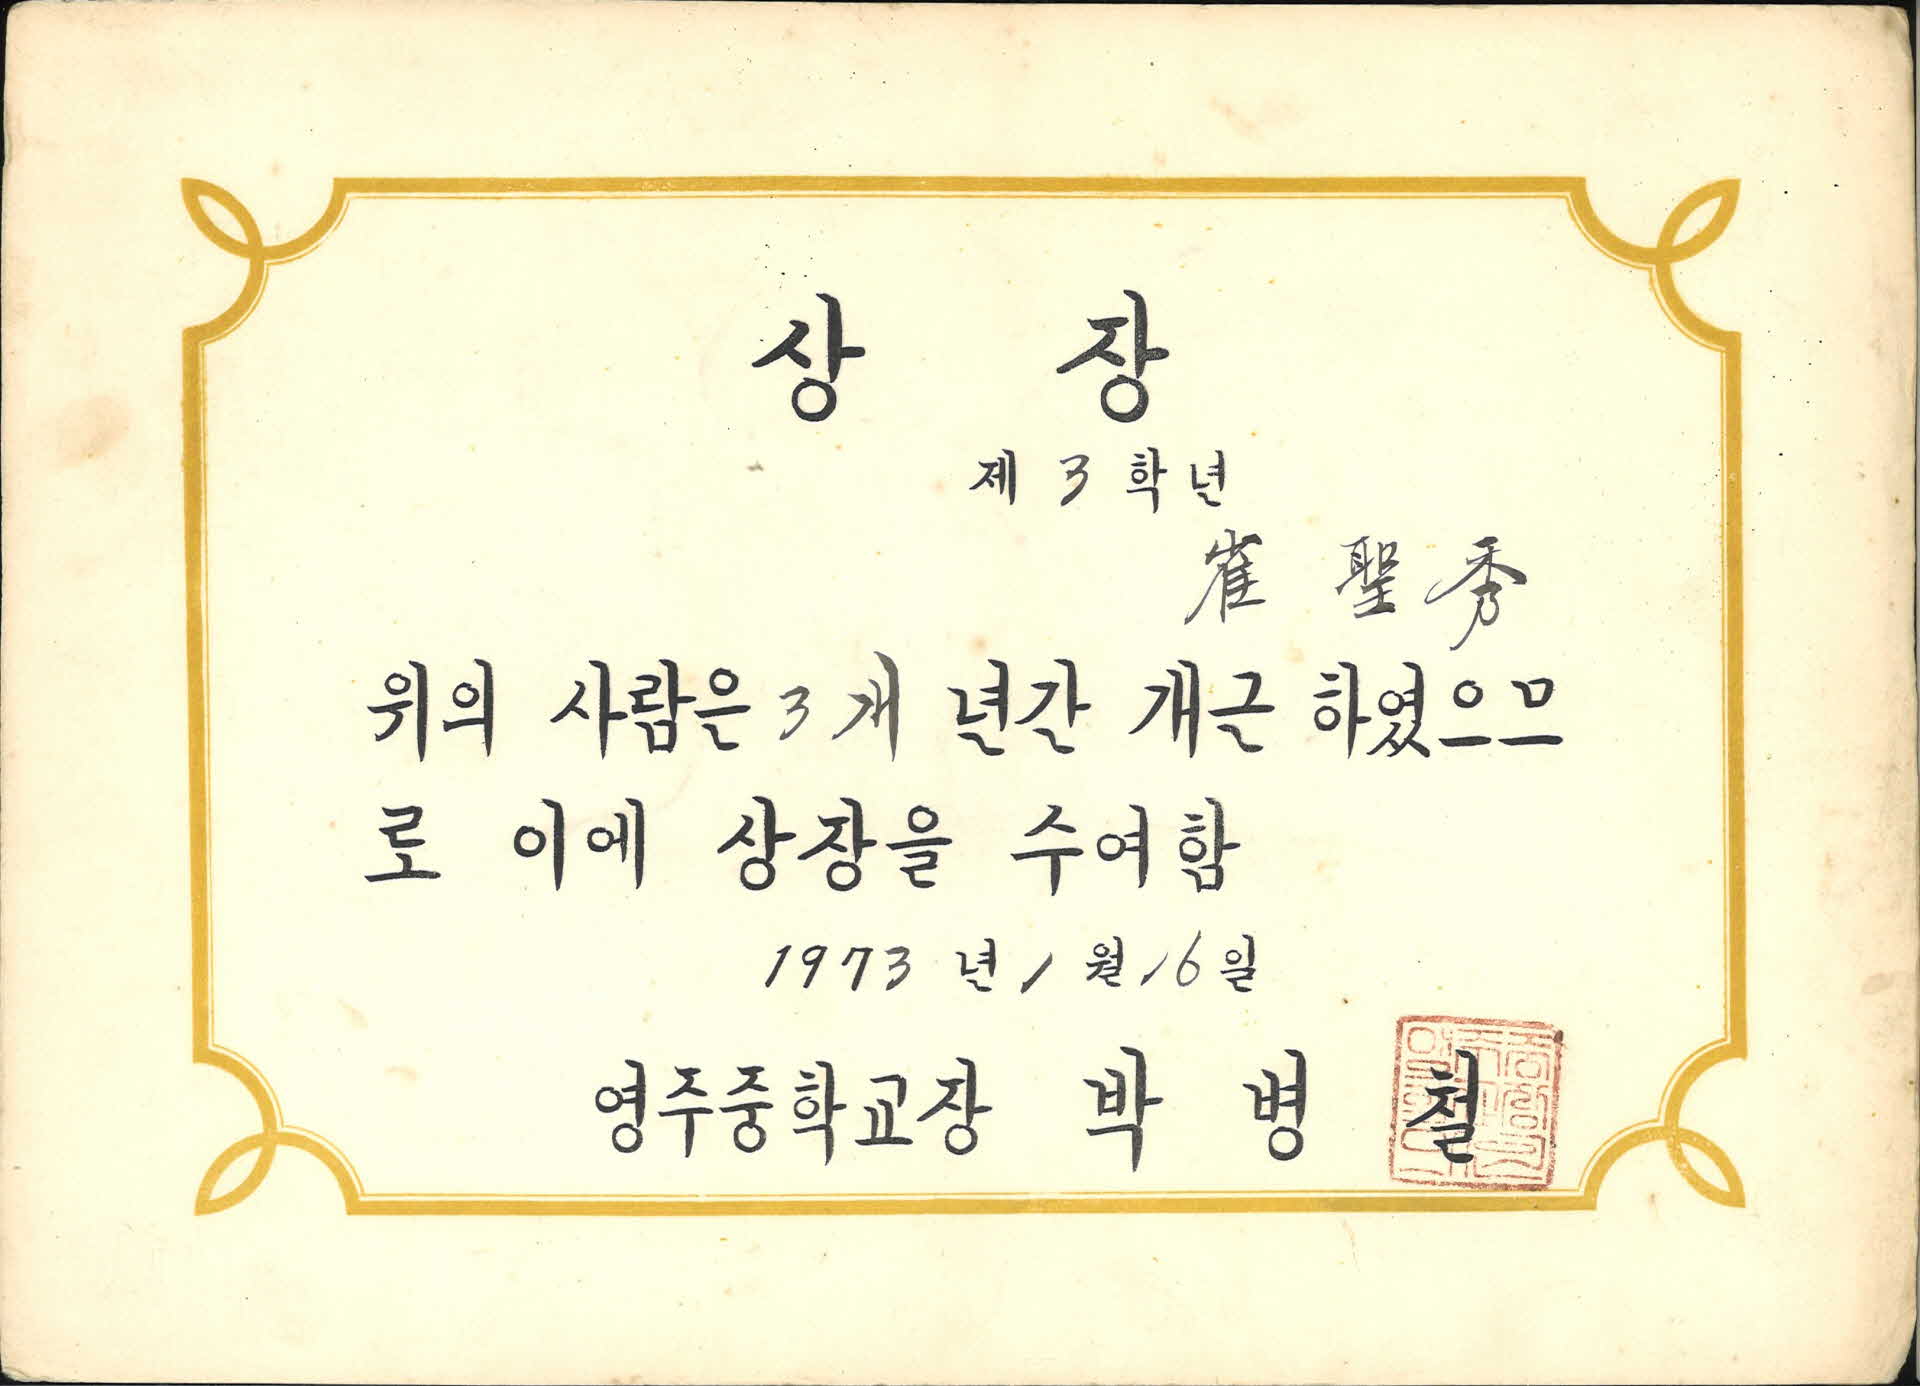 상 장
제 3 학년
崔 聖 秀
위의 사람은 3개 년간 개근 하였으므
로 이에 상장을 수여함
1973 년 1 월 16 일
영주중학교장 박 병 철